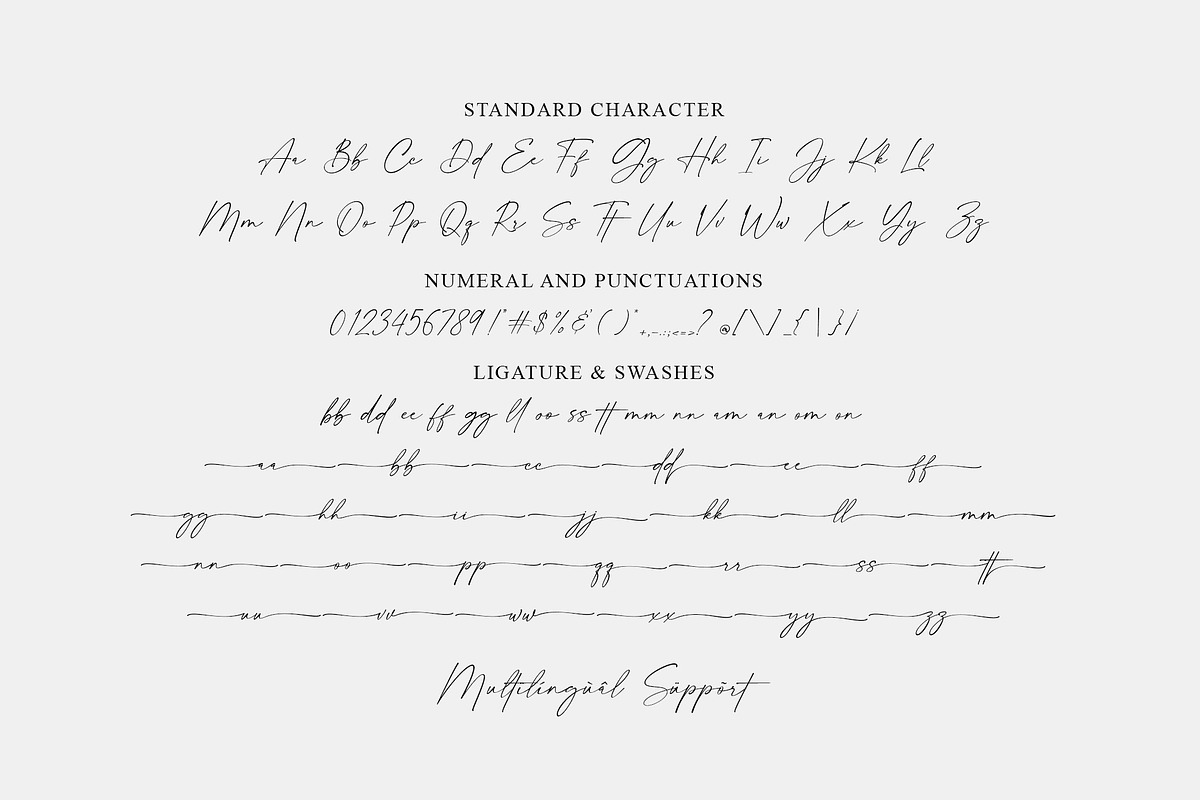 STANDARD CHARACTER
Aa Bb Cc Dd Ee Ff Gg Hh Ii Jj Kk Ll
Mm Nn Oo Pp Qq Rr Ss Tt Uu Vv Ww Xx Yy Zz
NUMERAL AND PUNCTUATIONS
0123456789!"#$%&'()*+,-.:;<=>?@[\]_{|}/
LIGATURE & SWASHES
bb dd ee ff gg ll oo ss tt mm nn am an om on
aa bb cc dd ee ff
gg hh ii jj kk ll mm
nn oo pp qq rr ss tt
uu vv ww xx yy zz
Multilíngùâl Süppört